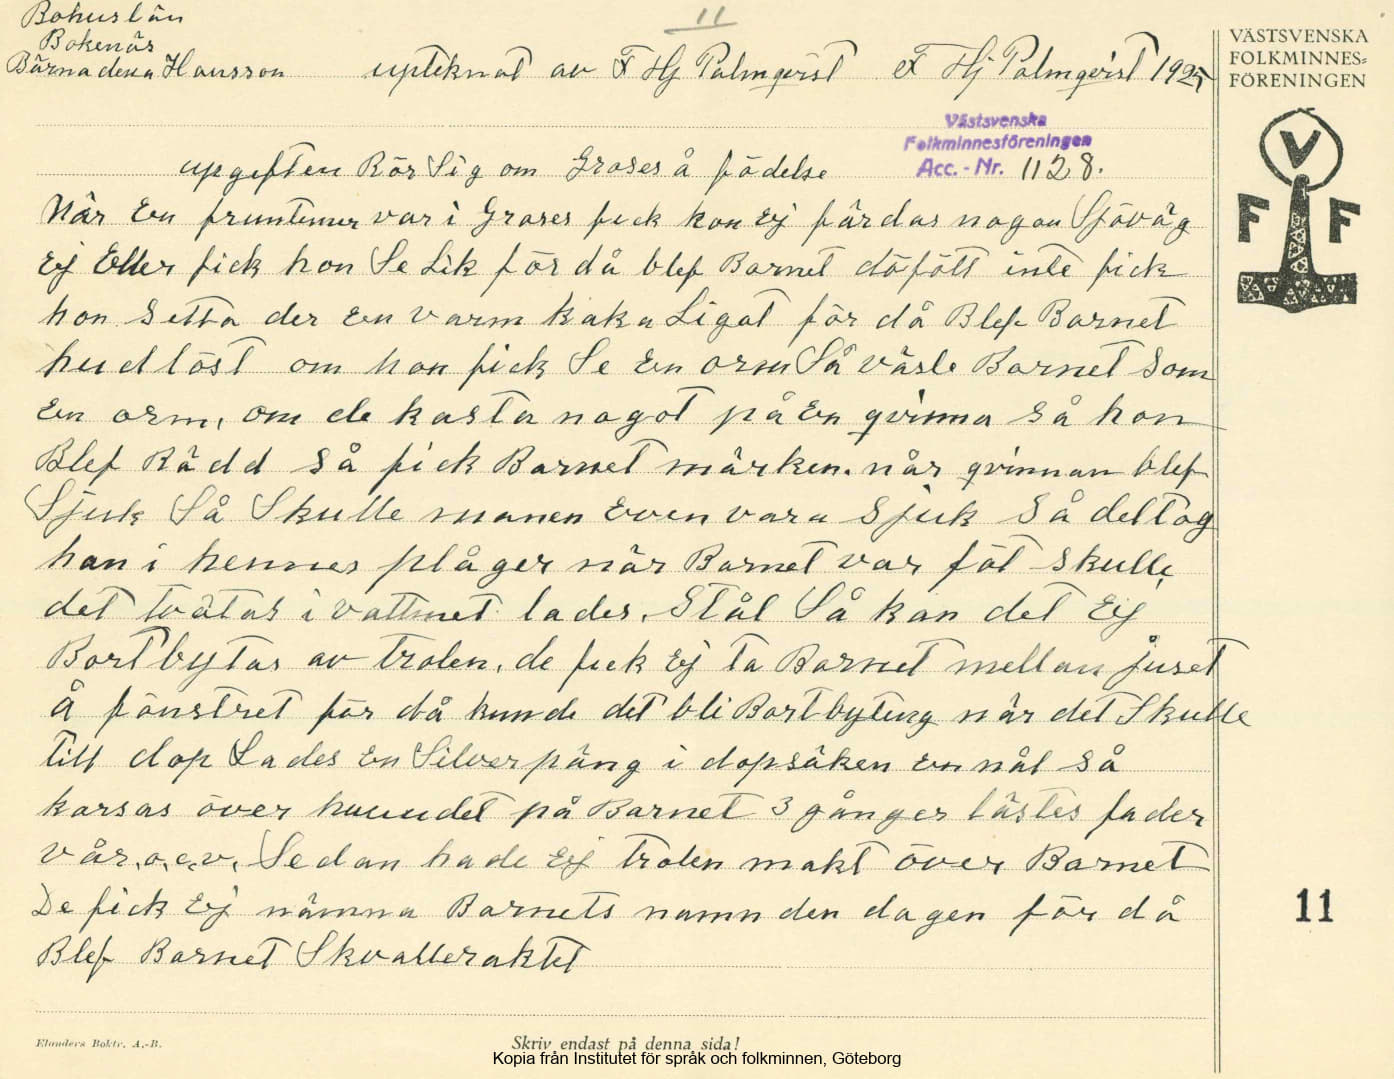 11
Bohuslän
Bokenäs
Bärnadena Hansson upteknat av F Hj Palmqvist F Hj Palmqvist 1925
VÄSTSVENSKA
FOLKMINNES=
FÖRENINGEN
Västsvenska
Folkminnesföreningen
Acc. - Nr. 1128.
V
F F
upgiften Rör Sig om Groses å födelse
När En fruntimer var i Groses fick hon Ej färdas nogon Sjöväg
Ej Eller fick hon Se Lik för då blef Barnet döfött inte fick
hon Setta der En varm kaka Ligat för då Blef Barnet
hudlöst om hon fick Se En orm Så väsle Barnet Som
En orm, om de kasta nogot på En qvinna så hon
Blef Rädd så fick Barnet märken. når qvinnan blef
Sjuk Så Skulle manen Even vara Sjuk Så deltog
han i hennes plåger när Barnet var föt skulle
det tvätas i vattnet lades. Stål Så kan det Ej
Bortbytas av trolen. de fick Ej ta Barnet mellan juset
å fönstret för då kunde det bli Bortbyting när det Skulle
till dop Lades En Silverpäng i dopsäken En nål så
korsas över huuudet på Barnet 3 gånger lästes fader
vår.o.c.v. Sedan hade Ej trolen makt över Barnet
De fick Ej nämna Barnets namn den dagen för då
Blef Barnet Skvalleraktet
11
Elanders Boktr. A.-B.
Skriv endast på denna sida!
Kopia från Institutet för språk och folkminnen, Göteborg